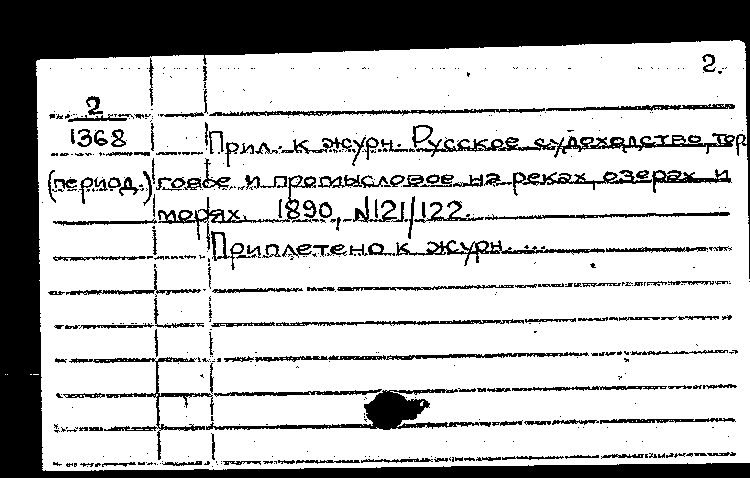 2.
2
1368 Прил. к журн. Русское судоходство, тор
(период.) говое и промысловое на реках, озерах и
морях. 1890, N121/122.
Приплетено к журн. ...